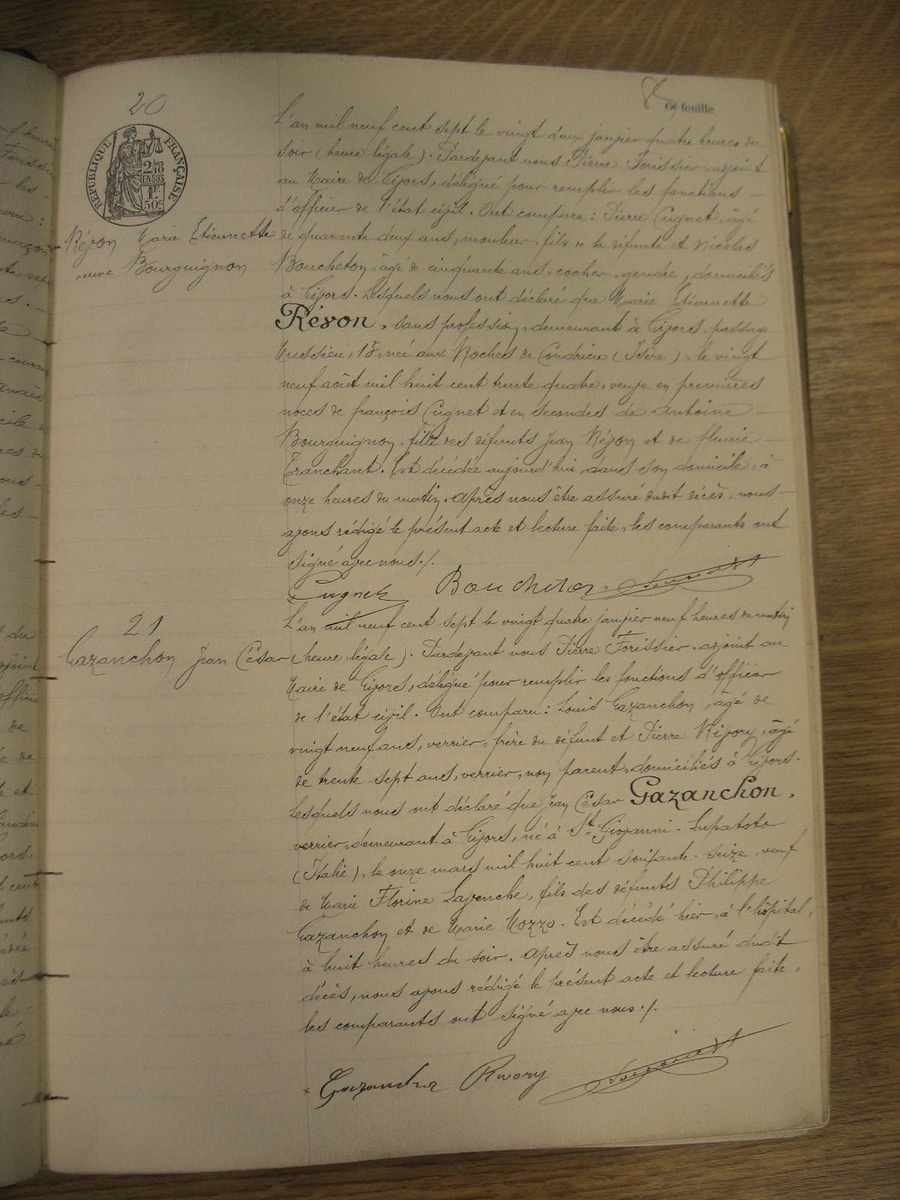 20
8
6e feuille
RÉPUBLIQUE FRANÇAISE
2/10
EN SUS
1f.
50c
Révon Marie Etiennette
veuve Bourguignon
L'an mil neuf cent sept le vingt deux janvier quatre heures du
soir (heure légale). Pardevant nous Pierre Forissier, adjoint
au Maire de Givors, délégué pour remplir les fonctions
d'officier de l'état civil. Ont comparu : Pierre Cugnet, âgé
de quarante deux ans, mouleur, fils de la défunte et Nicolas
Boucheton, âgé de cinquante ans, cocher, gendre, domiciliés
à Givors. Lesquels nous ont déclaré que Marie Etiennette
Révon, sans profession, demeurant à Givors, passage
née aux Roches de Condrieu (Isère), le vingt
neuf août mil huit cent trente quatre, veuve en premières
noces de François Cugnet et en secondes de Antoine
Bourguignon, fille des défunts Jean Révon et de Fleurie
Tranchant. Est décédée aujourd'hui, dans son domicile, à
onze heures du matin. Après nous être assuré dudit décès, nous
avons rédigé le présent acte et lecture faite, les comparants ont
signé avec nous ./.
Cugnet Boucheton Forissier
21
Gazanchon Jean César
L'an mil neuf cent sept le vingt quatre janvier neuf heures du matin
(heure légale). Pardevant nous Pierre Forissier, adjoint au
Maire de Givors, délégué pour remplir les fonctions d'officier
de l'état civil. Ont comparu : Louis Gazanchon, âgé de
vingt neuf ans, verrier, frère du défunt et Pierre Rivory, âgé
de trente sept ans, verrier, non parent, domiciliés à Givors.
Lesquels nous ont déclaré que Jean César Gazanchon,
verrier, demeurant à Givors, né à St Giovanni-Lupatoto
(Italie), le onze mars mil huit cent soixante-seize, veuf
de Marie Florine Lavenche, fils des défunts Philippe
Gazanchon et de Marie Mozzo. Est décédé hier, à l'hôpital,
à huit heures du soir. Après nous être assuré dudit
décès, nous avons rédigé le présent acte et lecture faite,
les comparants ont signé avec nous ./.
Gazanchon Rivory Forissier